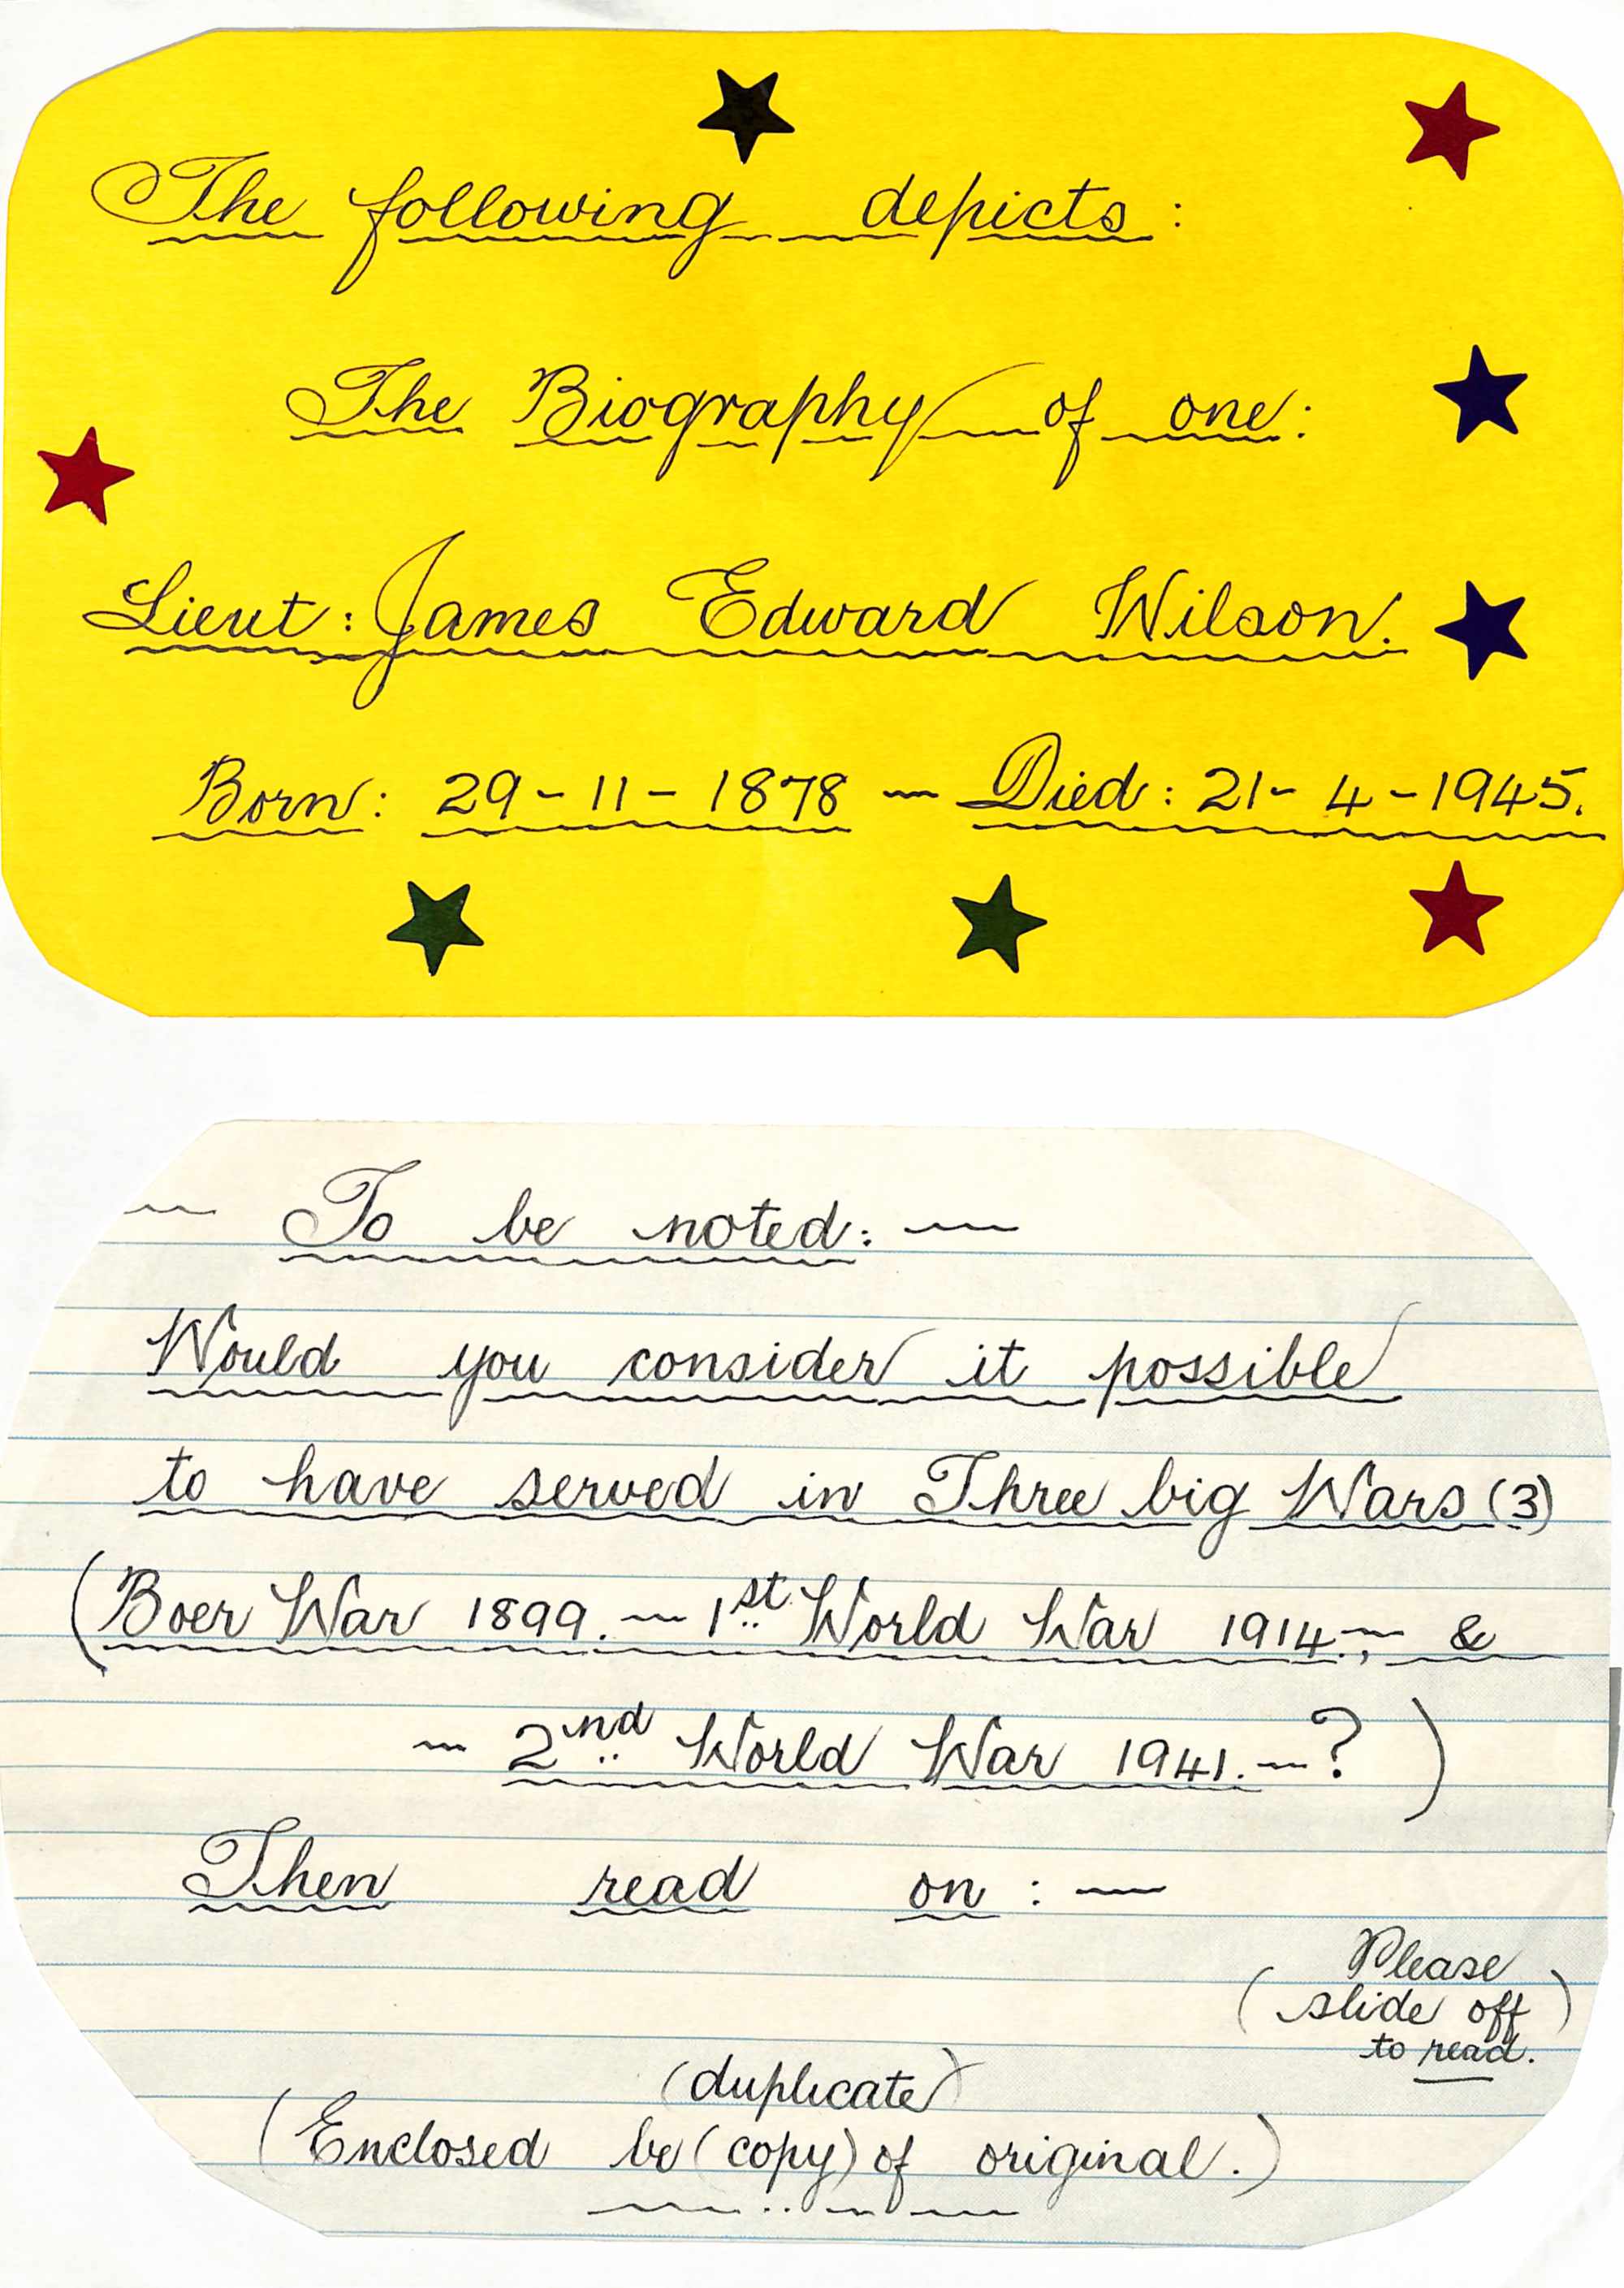 The following depicts:
The Biography of one:
Lieut: James Edward Wilson.
Born: 29-11-1878 — Died: 21-4-1945.
— To be noted: —
Would you consider it possible
to have served in Three big Wars (3)
(Boer War 1899. — 1st World War 1914 —, &
— 2nd World War 1941. — ?)
Then read on: —
(Please
slide off)
to read.
(duplicate)
(Enclosed be (copy) of original.)